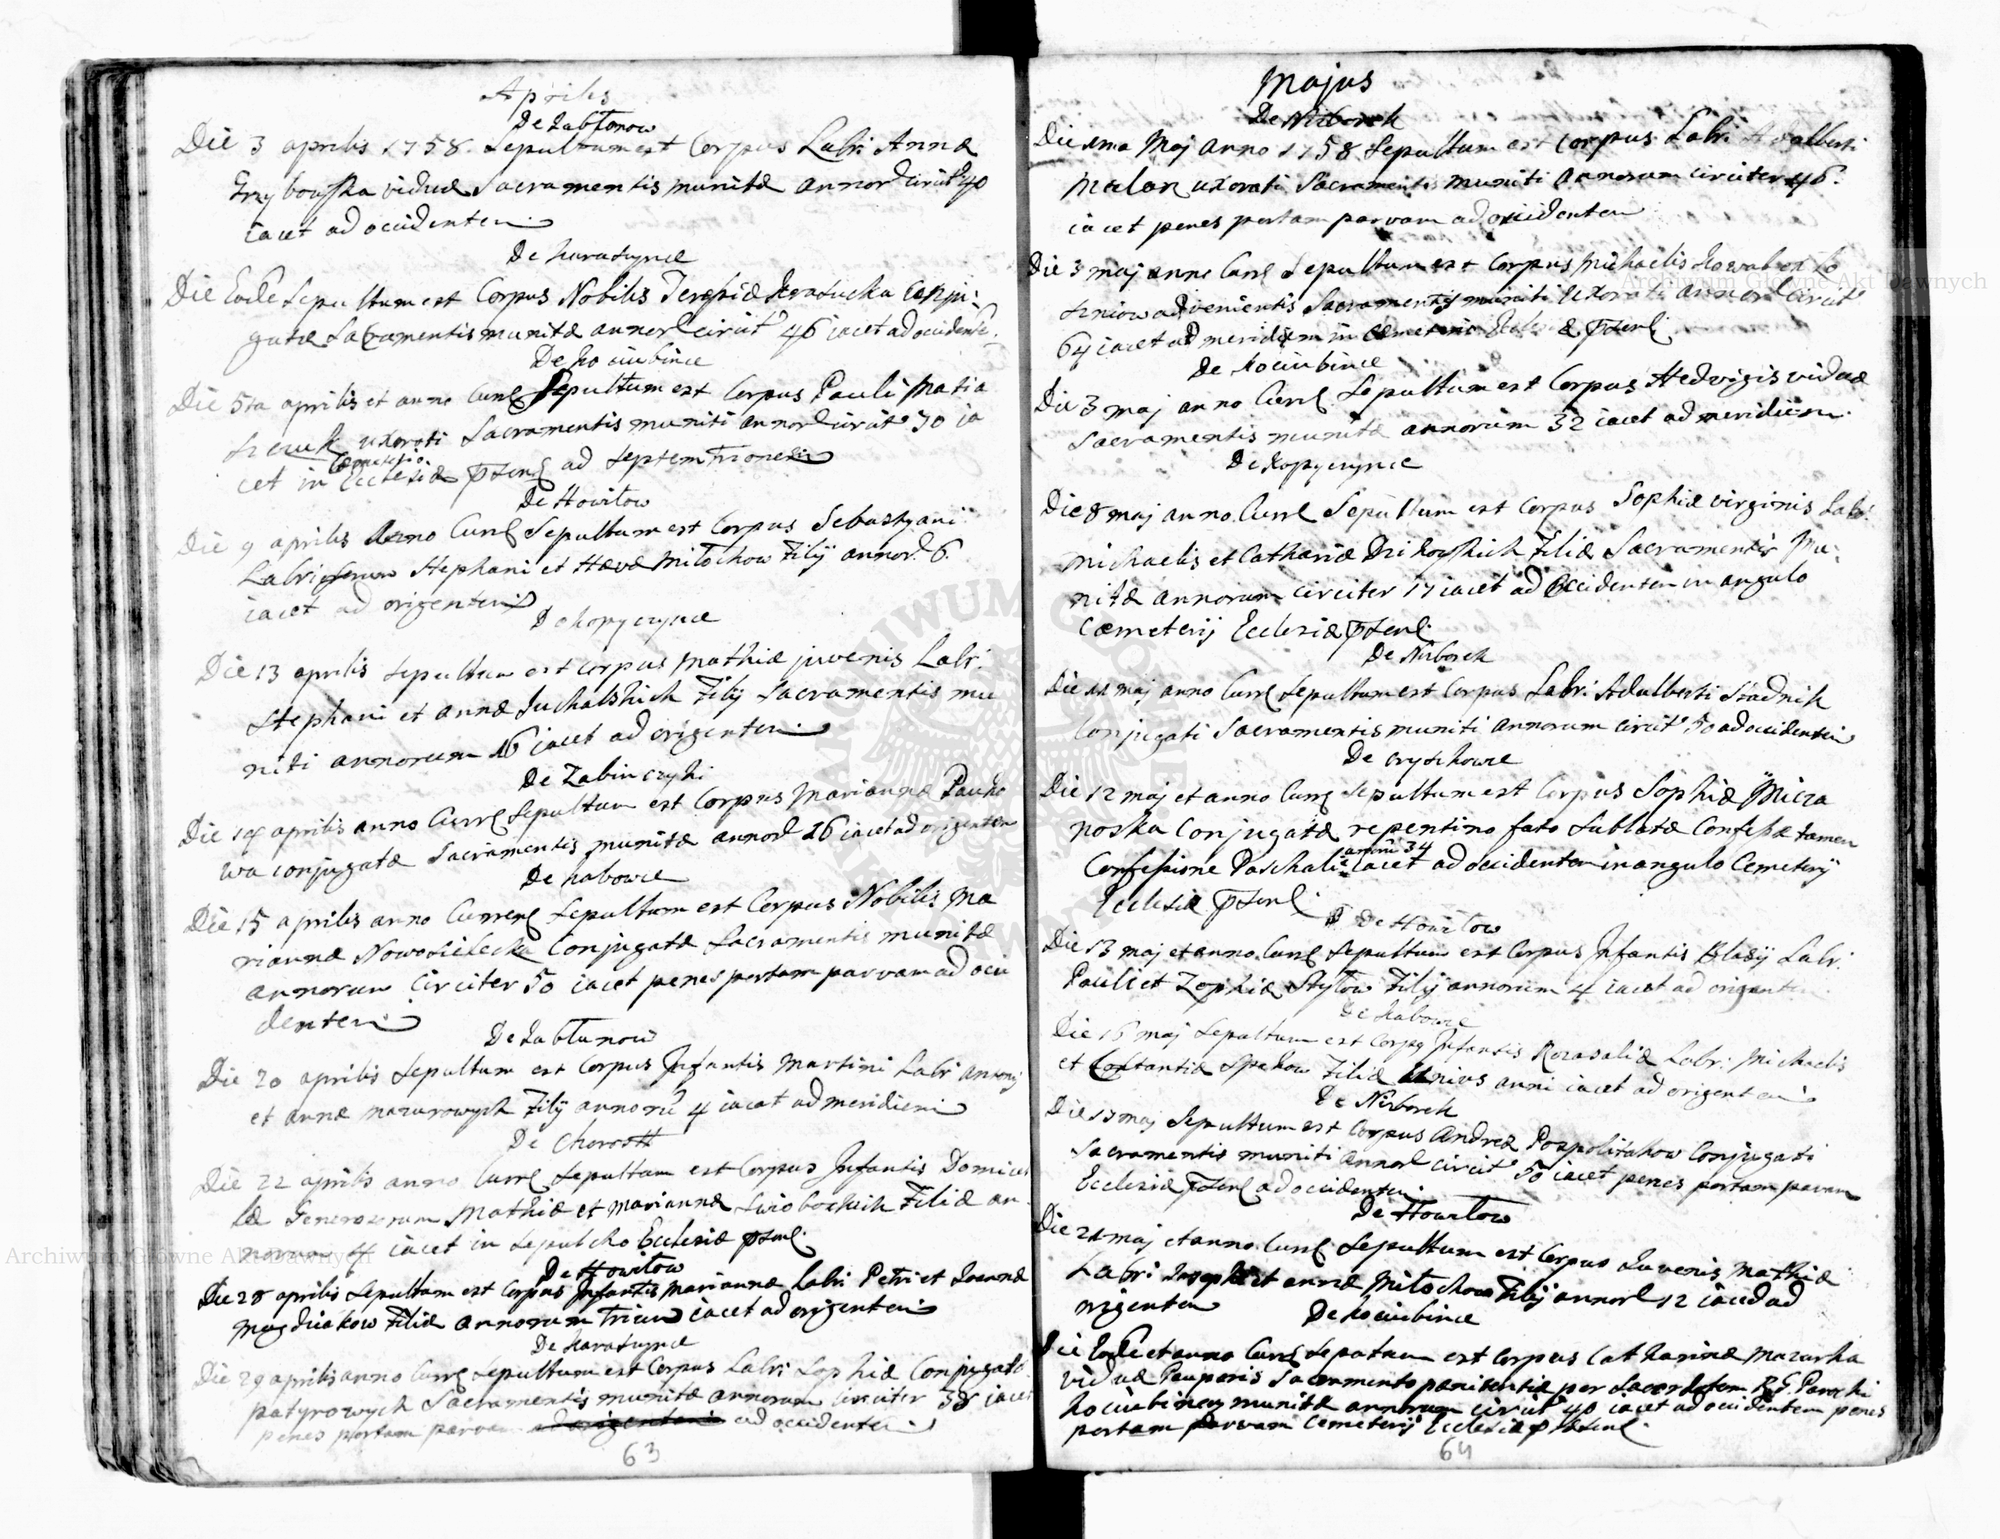 Aprilis
De Jabłonow
Die 3 aprilis 1758. Sepultum est Corpus Labr: Annæ
viduæ Sacramentis munitæ annor circit 40
iacet ad occidentem
De Karaszynce
Die Eode Sepultum est Corpus Nobilis Conju-
gatæ Sacramentis munitæ annor circit 46 iacet ad occidente.
De Kociubince
Die 5ta aprilis et anno Curr Sepultum est Corpus Pauli Matia
szczuk uxorati Sacramentis muniti annor circit 30 ia
Cæmeterio
cet in Ecclesiæ ad septemtrionem
De Howiłow
Die 9 aprilis Anno Curr Sepultum est Corpus Sebastyani
Stephani et Hævæ Miłochow Filij annor. 6.
iacet ad origentem
De Kopyczynce
Die 13 aprilis Sepultum est corpus Mathiæ juvenis Labr:
Stephani et annæ Suchalskich Filij Sacramentis mu
niti annorum 16 iacet ad origentem
De Zabinczyki
Die 14 aprilis anno Curr Sepultum est Corpus Mariannæ
wa conjugatæ Sacramentis munitæ annor 26 iacet ad origentem
De Kabowce
Die 15 aprilis anno Curren Sepultum est Corpus Nobilis Ma
riannæ Nowosielecka Conjugatæ Sacramentis munitæ
annorum Circiter 50 iacet penes portam parvam ad occi
dentem
De Jabłunow
Die 20 aprilis Sepultum est Corpus Infantis Martini Labr Antonij
et annæ Mazurowych Filij annoru 4 iacet ad meridiem
De Chorostk
Die 22 aprilis anno Curr Sepultum est Corpus Infantis Domicel
læ Generosorum Mathiæ et Mariannæ Filiæ an-
norum 4 iacet in Sepulchro Ecclesiæ
De Howiłow
Die 28 aprilis Sepultum est Corpus Infantis Mariannæ Labr: Petri et Joannæ
Magdziakow Filiæ annorum trium iacet ad origentem
De Karaszynce
Die 29 aprilis anno Curr Sepultum est Corpus Labr: Sophiæ Conjugatæ
patyrowych Sacramentis munitæ annorum circiter 38 iacet
penes portam parvam ad origentem ad occidentem
63
Majus
De Niżborek
Die 1ma Maj anno 1758 Sepultum est Corpus Labr: Adalberti
Malon uxorati Sacramentis muniti annorum circiter 46.
iacet penes portam parvam ad occidentem
Die 3 maj anno Curr Sepultum est Corpus Michaelis
advenientis Sacramentis muniti uxorati annor circit
64 iacet ad meridiem in Cæmeterio
De Kociubince
Die 3 maj anno Curr Sepultum est Corpus Hedvigis viduæ
Sacramentis munitæ annorum 32 iacet ad meridiem.
De Kopyczynce
Die 8 maj anno Curr Sepultum est Corpus Sophiæ virginis Labr:
Michaelis et Catharinæ Filiæ Sacramentis mu-
nitæ annorum circiter 17 iacet ad occidentem in angulo
Cæmeterij Ecclesiæ
De Niżborek
Die 11 maj anno Curr Sepultum est Corpus Labr: Adalberti Stadnik
Conjugati Sacramentis muniti annorum circit 50 ad occidentem
De
Die 12 maj et anno Curr Sepultum est Corpus Sophiæ Micza
noska Conjugatæ repentino fato sublatæ Confessæ tamen
annor 34
Confessione Paschali iacet ad occidentem in angulo Cemeterij
Ecclesiæ
De Howiłow
Die 13 maj et anno Curr Sepultum est Corpus Infantis Blasij Labr:
Pauli et Zophiæ Stytow Filij annorum 4 iacet ad origentem
De Kabowce
Die 16 maj Sepultum est Corpus Infantis Rozaliæ Labr: Michaelis
et Constantiæ Filiæ Unius anni iacet ad origentem
De Niżborek
Die 17 maj Sepultum est Corpus Andreæ Pospolitakow Conjugati
Sacramentis muniti annor circit 50 iacet penes portam parvam
Ecclesiæ ad occidentem
De Howiłow
Die 21 maj et anno Curr Sepultum est Corpus Juvenis Mathiæ
Labr: Josephi et annæ Miłochow Filij annor 12 iacet ad
origentem
De Kociubince
Die Eode et anno Curr Sepultum est Corpus Catharinæ Mazurka
viduæ Pauperis Sacramento pænitentiæ per Sacerdotem R. G. Parochi
Kociubincen munitæ annorum circit 40 iacet ad occidentem penes
portam parvam Cemeterij Ecclesiæ
64
Archiwum Główne Akt Dawnych
Archiwum Główne Akt Dawnych